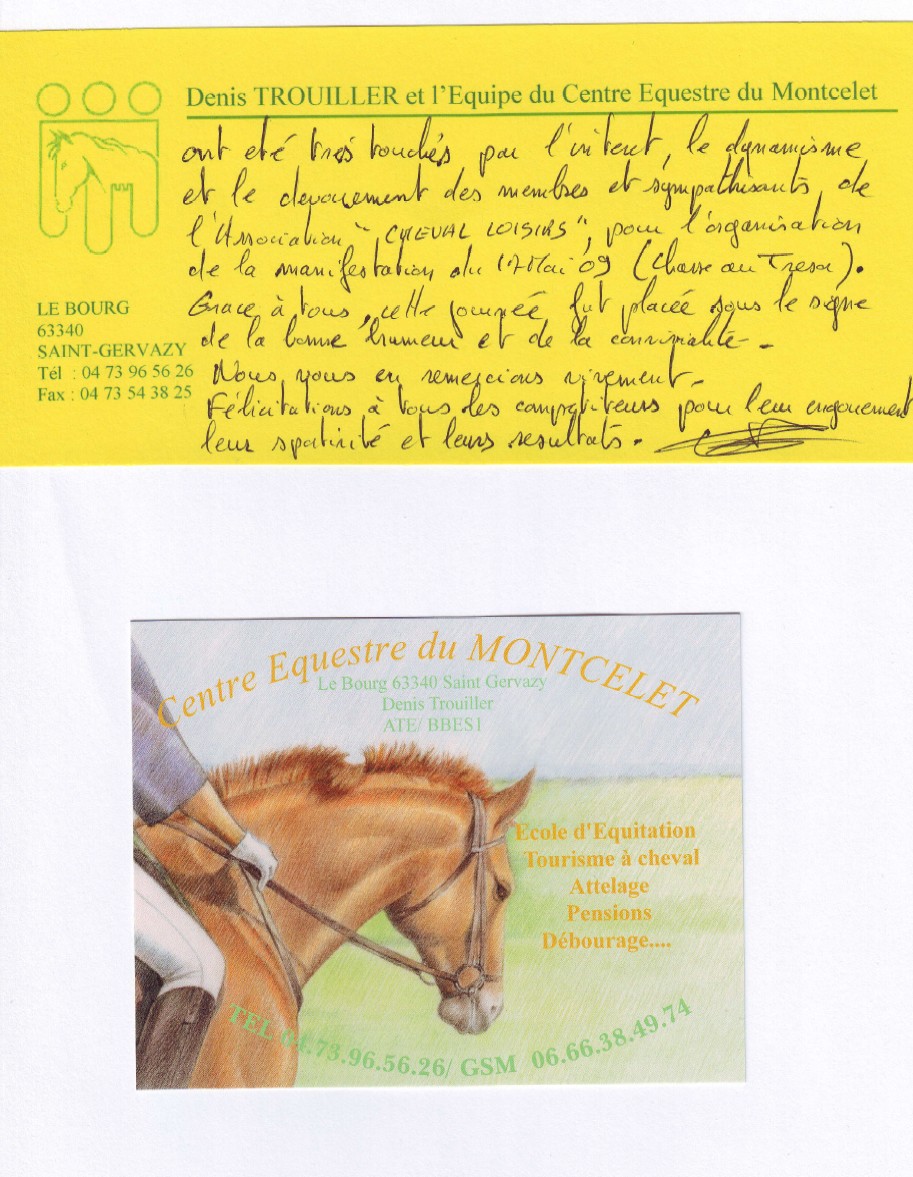 Denis TROUILLER et l'Equipe du Centre Equestre du Montcelet
ont eté très touchés par l'interet, le dynamisme
et le devouement des membres et sympathisants, de
l'Association "CHEVAL LOISIRS", pour l'organisation
de la manifestation du 17 Mai 09 (Chasse au Tresor).
Grace à tous, cette journéé fut placée sous le signe
de la bonne humeur et de la convivialité -
Nous vous en remercions vivement -
Félicitations à tous les compétiteurs pour leur engouement
leur sportivité et leurs resultats.
LE BOURG
63340
SAINT-GERVAZY
Tél : 04 73 96 56 26
Fax : 04 73 54 38 25
Centre Equestre du MONTCELET
Le Bourg 63340 Saint Gervazy
Denis Trouiller
ATE/ BBES1
Ecole d'Equitation
Tourisme à cheval
Attelage
Pensions
Débourage....
TEL 04.73.96.56.26/ GSM 06.66.38.49.74